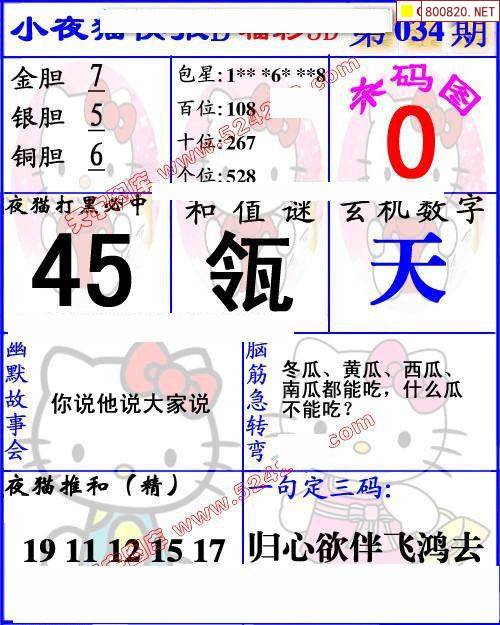 800820.NET
小夜猫快报D 福彩3D 第034期
金胆 7
银胆 5
铜胆 6
包星:1** *6* **8
百位:108
十位:267
个位:528
杀码图
0
夜猫打黑必中
45
和值谜
瓴
玄机数字
天
幽默故事会
你说他说大家说
脑筋急转弯
冬瓜、黄瓜、西瓜、
南瓜都能吃，什么瓜
不能吃？
夜猫推和（精）
19 11 12 15 17
一句定三码:
归心欲伴飞鸿去